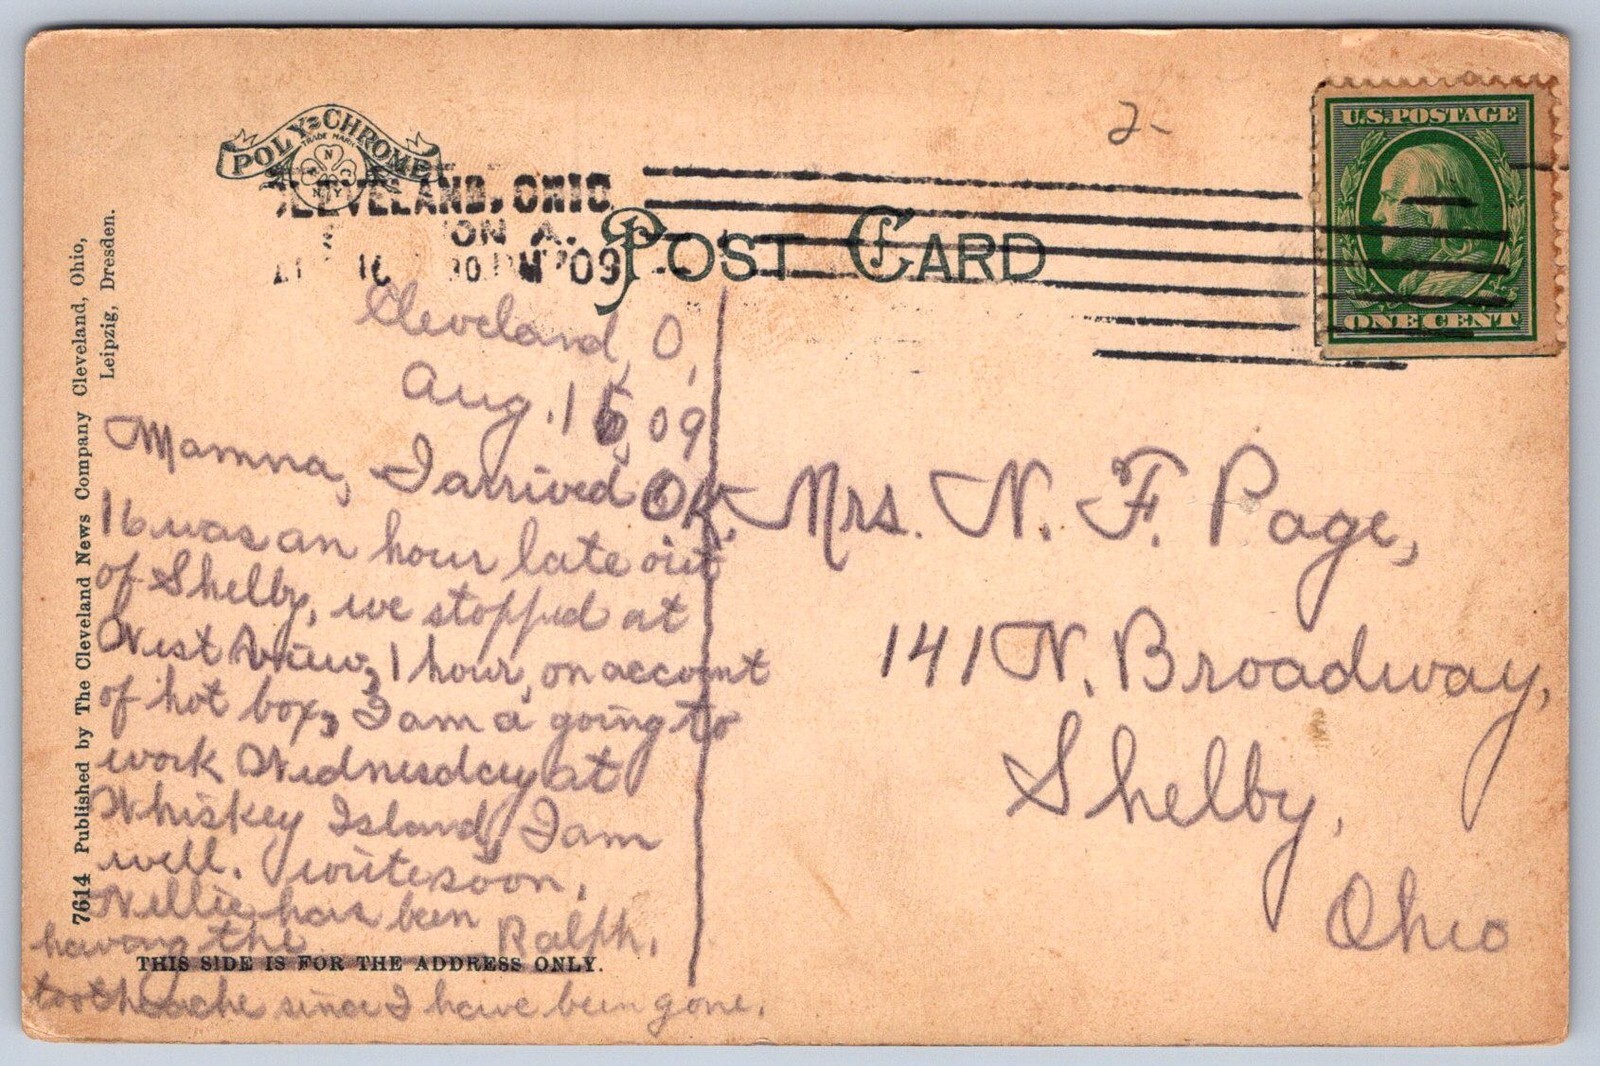 2-
U.S. POSTAGE
ONE CENT
POLY-CHROME
TRADE MARK
CLEVELAND, OHIO
ON A.
'09
POST CARD
7614 Published by The Cleveland News Company Cleveland, Ohio,
Leipzig, Dresden.
Cleveland, O,
Aug. 16, 09
Mamma, I arrived OK.
16 was an hour late out
of Shelby, we stopped at
West View, 1 hour, on account
of hot box, I am a going to
work Wednesday at
Whiskey Island, I am
well. write soon,
Ralph.
Nellie has been
having the
toothache since I have been gone.
THIS SIDE IS FOR THE ADDRESS ONLY.
Mrs. N. F. Page,
141 N. Broadway,
Shelby,
Ohio